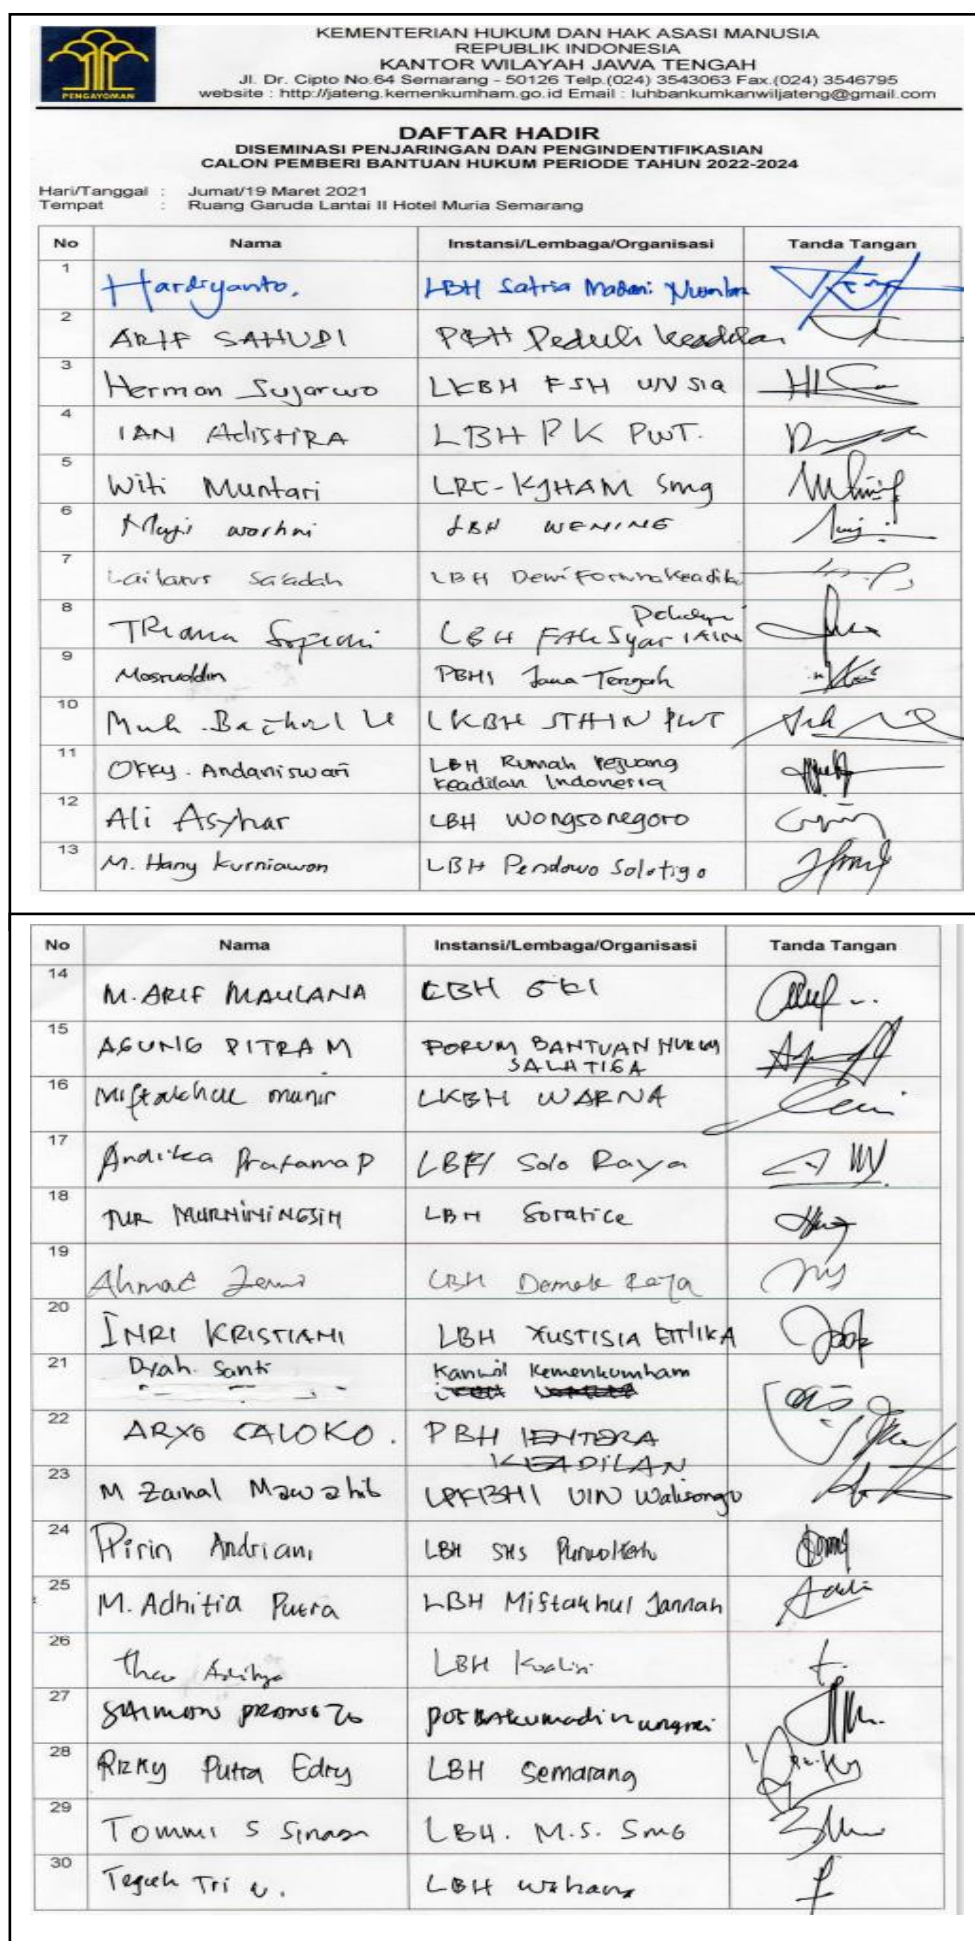 KEMENTERIAN HUKUM DAN HAK ASASI MANUSIA
REPUBLIK INDONESIA
KANTOR WILAYAH JAWA TENGAH
Jl. Dr. Cipto No.64 Semarang - 50126 Telp.(024) 3543063 Fax.(024) 3546795
website : http://jateng.kemenkumham.go.id Email : luhbankumkanwiljateng@gmail.com
PENGAYOMAN
DAFTAR HADIR
DISEMINASI PENJARINGAN DAN PENGINDENTIFIKASIAN
CALON PEMBERI BANTUAN HUKUM PERIODE TAHUN 2022-2024
Hari/Tanggal : Jumat/19 Maret 2021
Tempat : Ruang Garuda Lantai II Hotel Muria Semarang
No Nama Instansi/Lembaga/Organisasi Tanda Tangan
1 Hardiyanto. LBH Satria
2 ARIF SAHUDI PBH Peduli Keadilan
3 Herman Sujarwo LKBH FSH UNSIQ
4 IAN AdistiRA LBH PK PWT.
5 Witi Muntari LRC-KJHAM Smg
6 LBH WENING
7 Lailatus Sa'adah LBH Dewi Fortuna Keadila
8 TRiana LBH FAK Syar IAIN
9 Masruddin PBHI Jawa Tengah
10 Muh. LKBH STHIN PWT
11 Okky. Andaniswari LBH Rumah Pejuang
Keadilan Indonesia
12 Ali Asyhar LBH Wongsonegoro
13 M. Hany Kurniawan LBH Pendowo Salatiga
No Nama Instansi/Lembaga/Organisasi Tanda Tangan
14 M. ARIF MAULANA LBH
15 AGUNG PITRA M FORUM BANTUAN HUKUM
SALATIGA
16 Miftakhul munir LKBH WARNA
17 Andika Pratama P LBH Solo Raya
18 NUR MURNININGSIH LBH
19 Ahmad LBH Demak Raya
20 INRI KRISTIANI LBH YUSTISIA ETHIKA
21 Dyah. Santi Kanwil Kemenkumham
22 ARYO CALOKO. PBH LENTERA
KEADILAN
23 M Zainal Mawahib LPKBHI UIN Walisongo
24 Pirin Andriani LBH SHS Purwokerto
25 M. Adhitia Putra LBH Miftakhul Jannah
26 LBH
27 ungaran
28 Rizky Putra Edry LBH Semarang
29 Tommi S LBH. M.S. SmG
30 Teguh Tri LBH